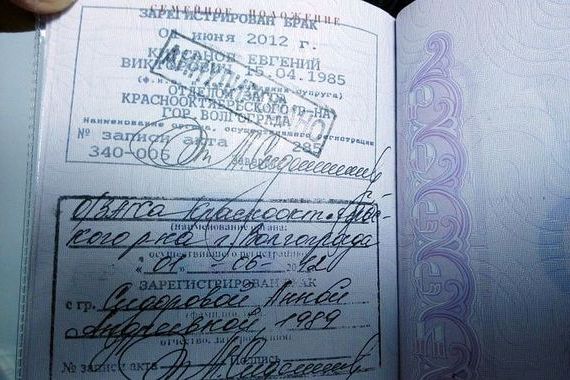 СЕМЕЙНОЕ ПОЛОЖЕНИЕ
ЗАРЕГИСТРИРОВАН БРАК
01 июня 2012 г.
ЕВГЕНИЙ
15.04.1985
(ф.и.о. супруга)
ОТДЕЛОМ
КРАСНООКТЯБРЬСКОГО Р-НА
ГОР. ВОЛГОГРАДА
Наименование органа, осуществившего регистрацию
№ записи акта 285
340-006
ОЗАГСа Краснооктябрь-
ского р-на г. Волгограда
(наименование органа,
осуществившего регистрацию)
"01" - 06 - 2012
ЗАРЕГИСТРИРОВАН БРАК
с гр. Сидоровой Анной
Андреевной, 1989
отчество, дата рождения)
№ записи акта Подпись